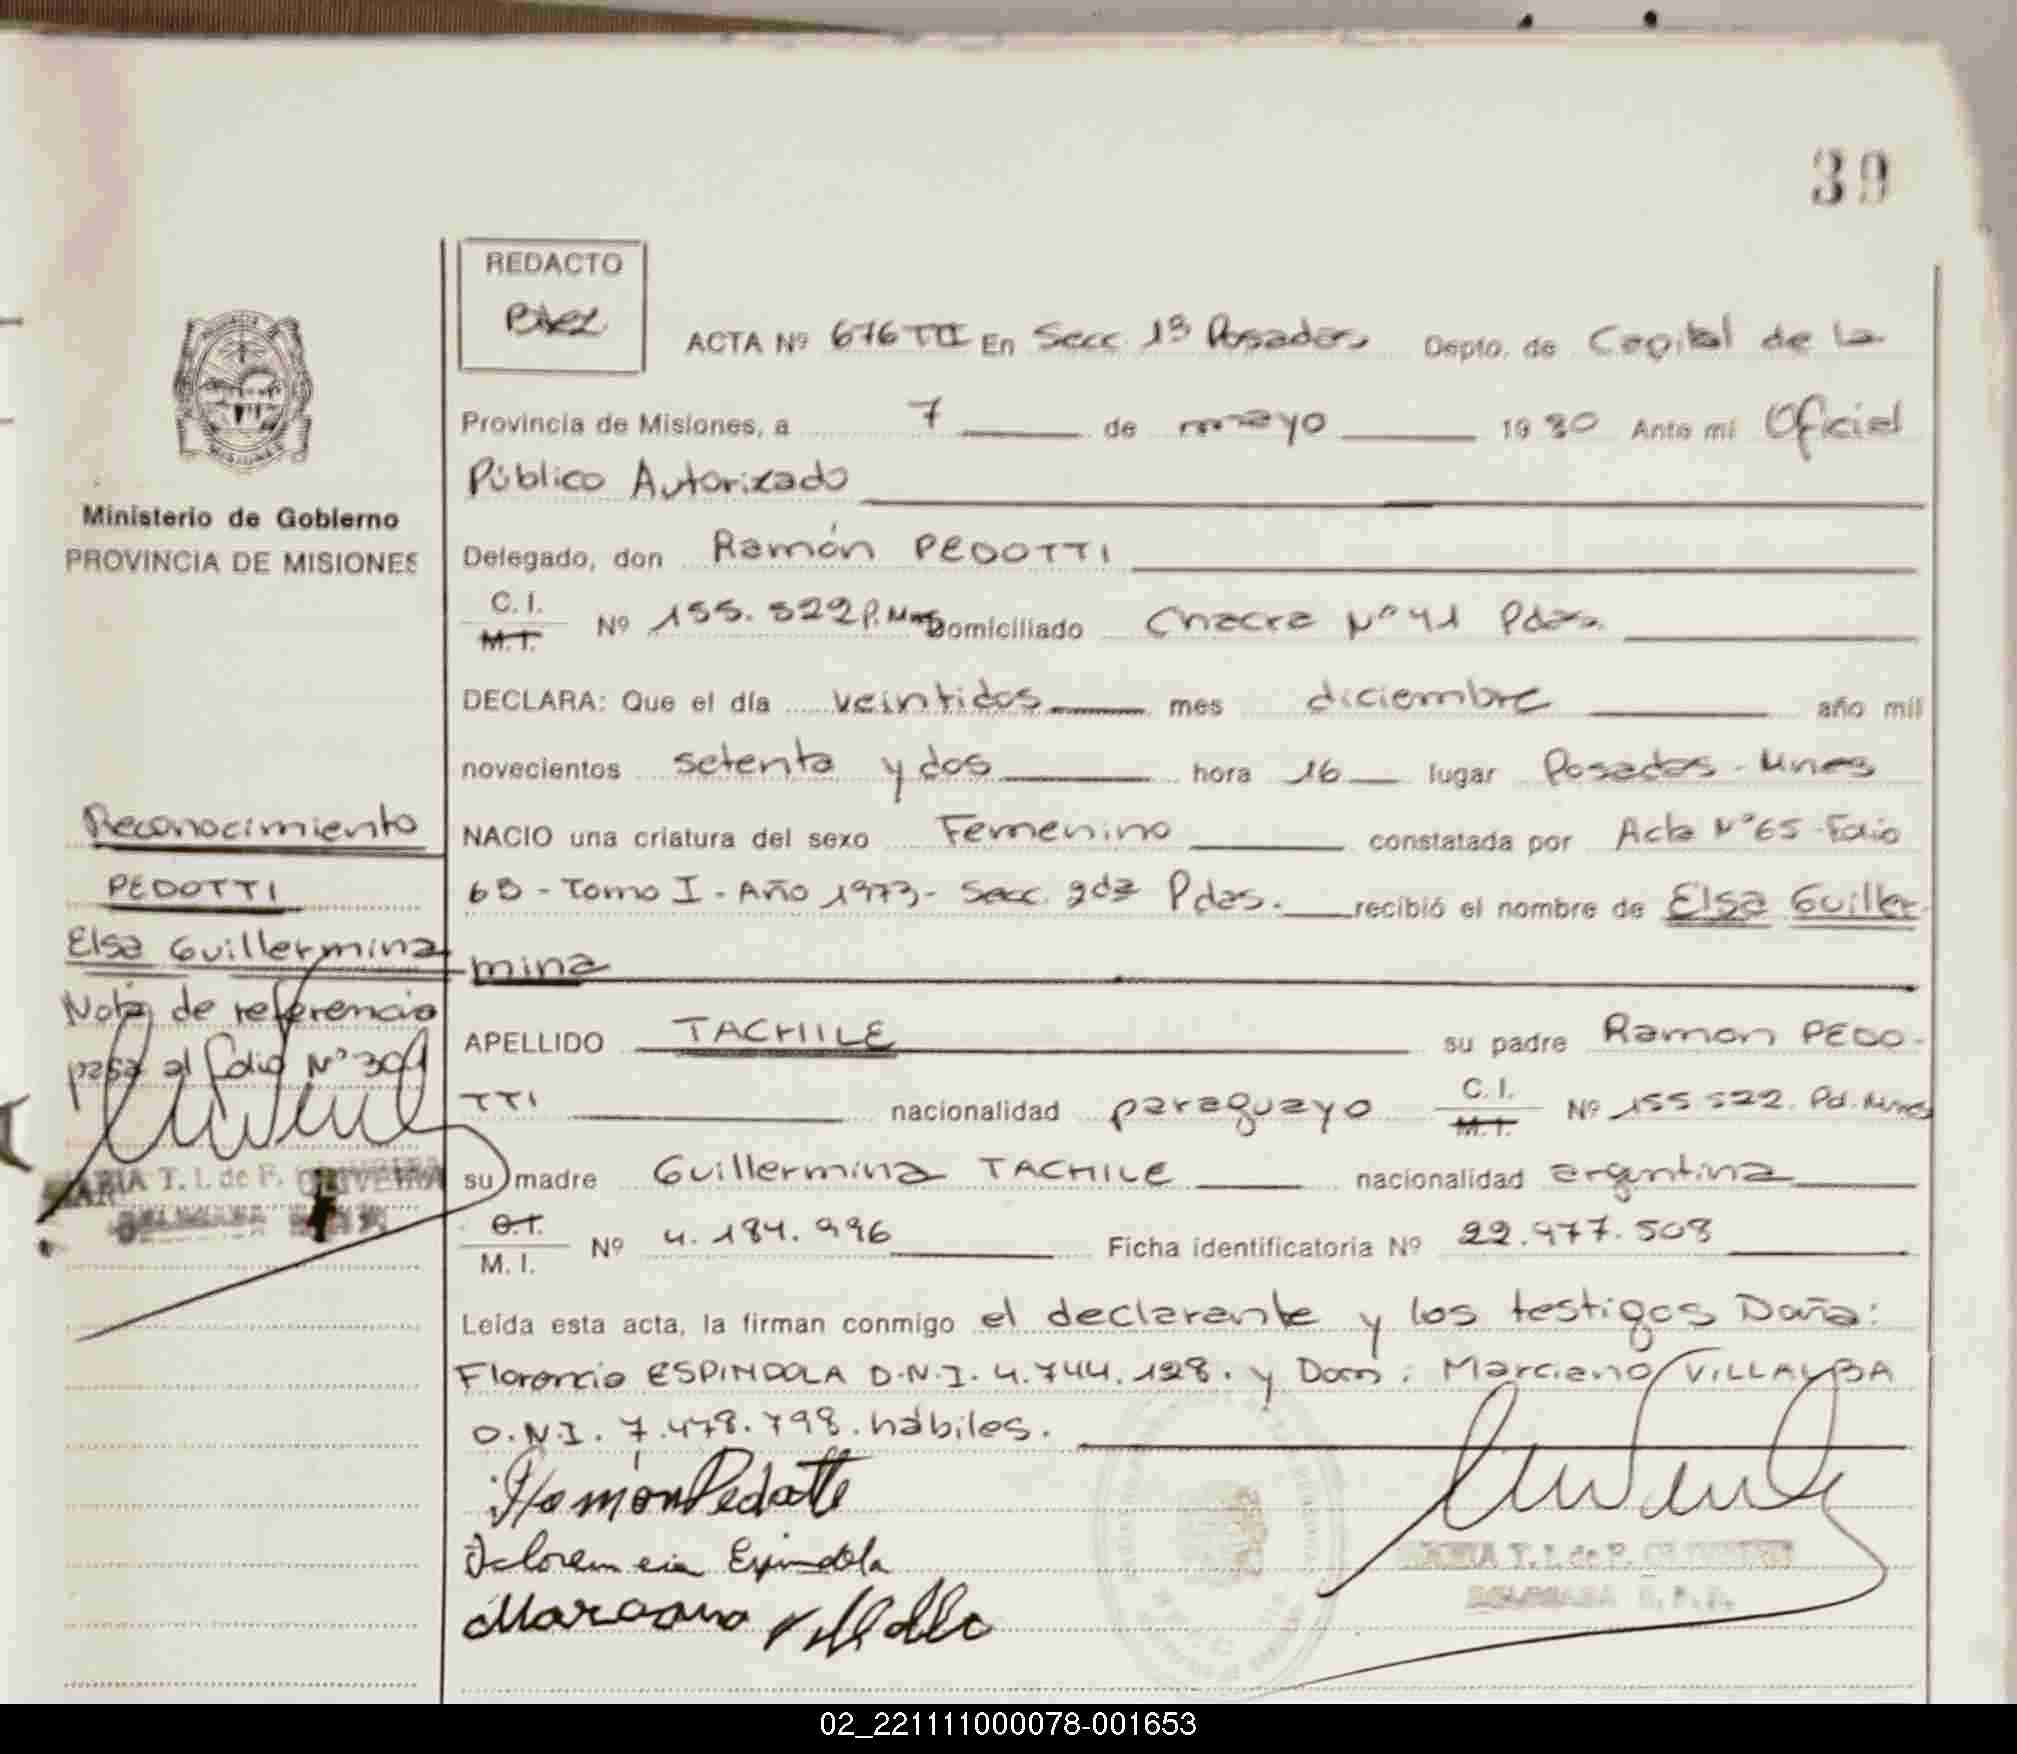 39
REDACTO
Báez
ACTA Nº 676 TII En Secc. 1ª Posadas Depto. de Capital de la
Provincia de Misiones, a 7 de mayo 1980 Ante mí Oficial
Público Autorizado
Ministerio de Gobierno
PROVINCIA DE MISIONES
Delegado, don Ramón PEDOTTI
C. I.
M. I. Nº 155.522 P. Mnes Domiciliado Chacra Nº 41 Pdas.
DECLARA: Que el día veintidos mes diciembre año mil
novecientos setenta y dos hora 16 lugar Posadas - Mnes
NACIO una criatura del sexo Femenino constatada por Acta Nº 65 - Folio
65 - Tomo I - Año 1973 - Secc. 2da Pdas. recibió el nombre de Elsa Guiller-
mina
Reconocimiento
PEDOTTI
Elsa Guillermina
Nota de referencia
pasa al folio Nº 309
APELLIDO TACHILE su padre Ramon PEDO-
TTI nacionalidad paraguayo C. I.
M. I. Nº 155 522. Pd. Mnes
su madre Guillermina TACHILE nacionalidad argentina
C. I.
M. I. Nº 4.184.996 Ficha identificatoria Nº 22.977.508
MARIA T. I. de P. OLIVEIRA
DELEGADA
Leída esta acta, la firman conmigo el declarante y los testigos Doña:
Florencia ESPINDOLA D.N.I. 4.744.128. y Don: Marciano VILLALBA
D.N.I. 7.478.798. hábiles.
Ramón Pedotti
Florencia Espindola
Marciano Villalba
MARIA T. I. de P. OLIVEIRA
DELEGADA R. P. P.
02_221111000078-001653